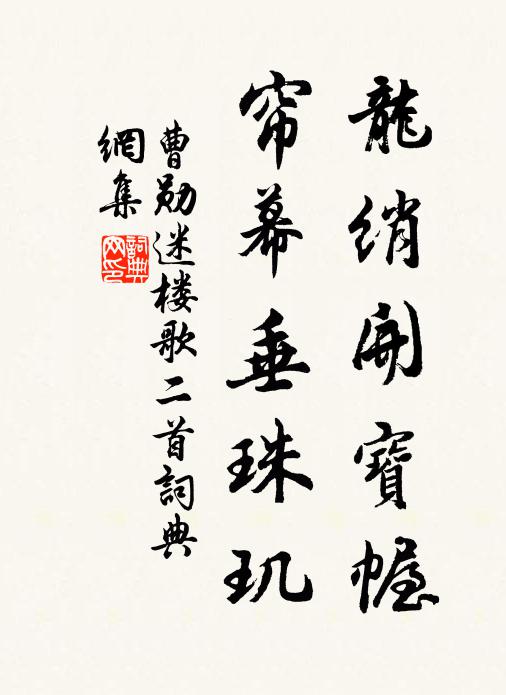 龍綃開寶幄
帘幕垂珠玑
曹勋迷楼歌二首詞典
網集
詞典网印